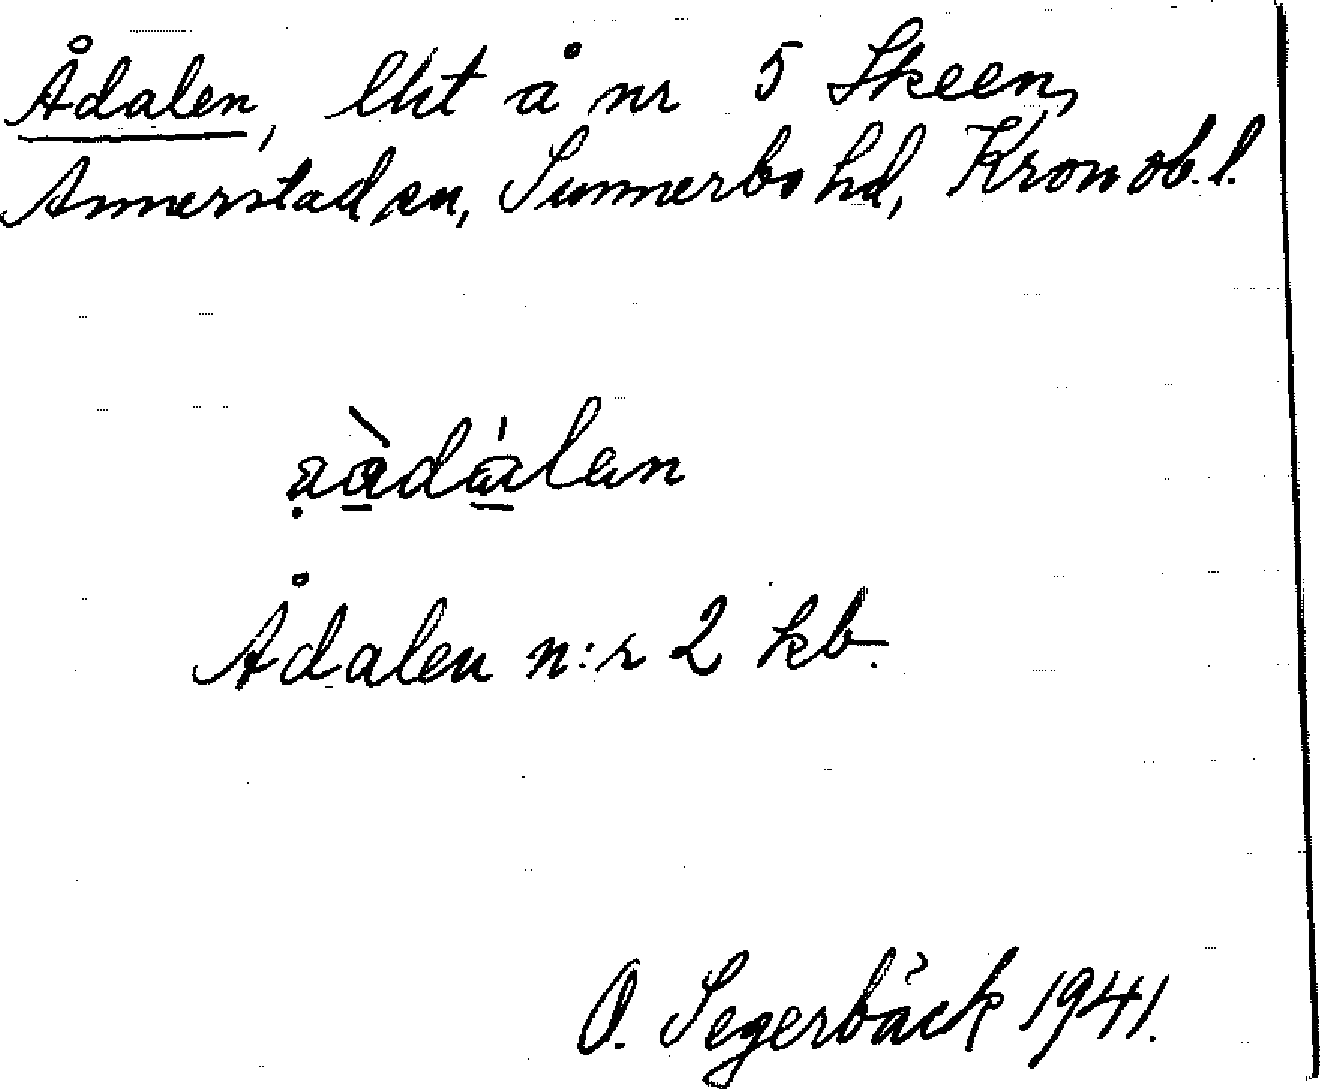 Ådalen, lht å nr 5 Skeen,
Annerstad sn, Sunnerbo hd, Kronob. l.
aàdálan
Ådalen n:r 2 kb.
O. Segerbäck 1941.